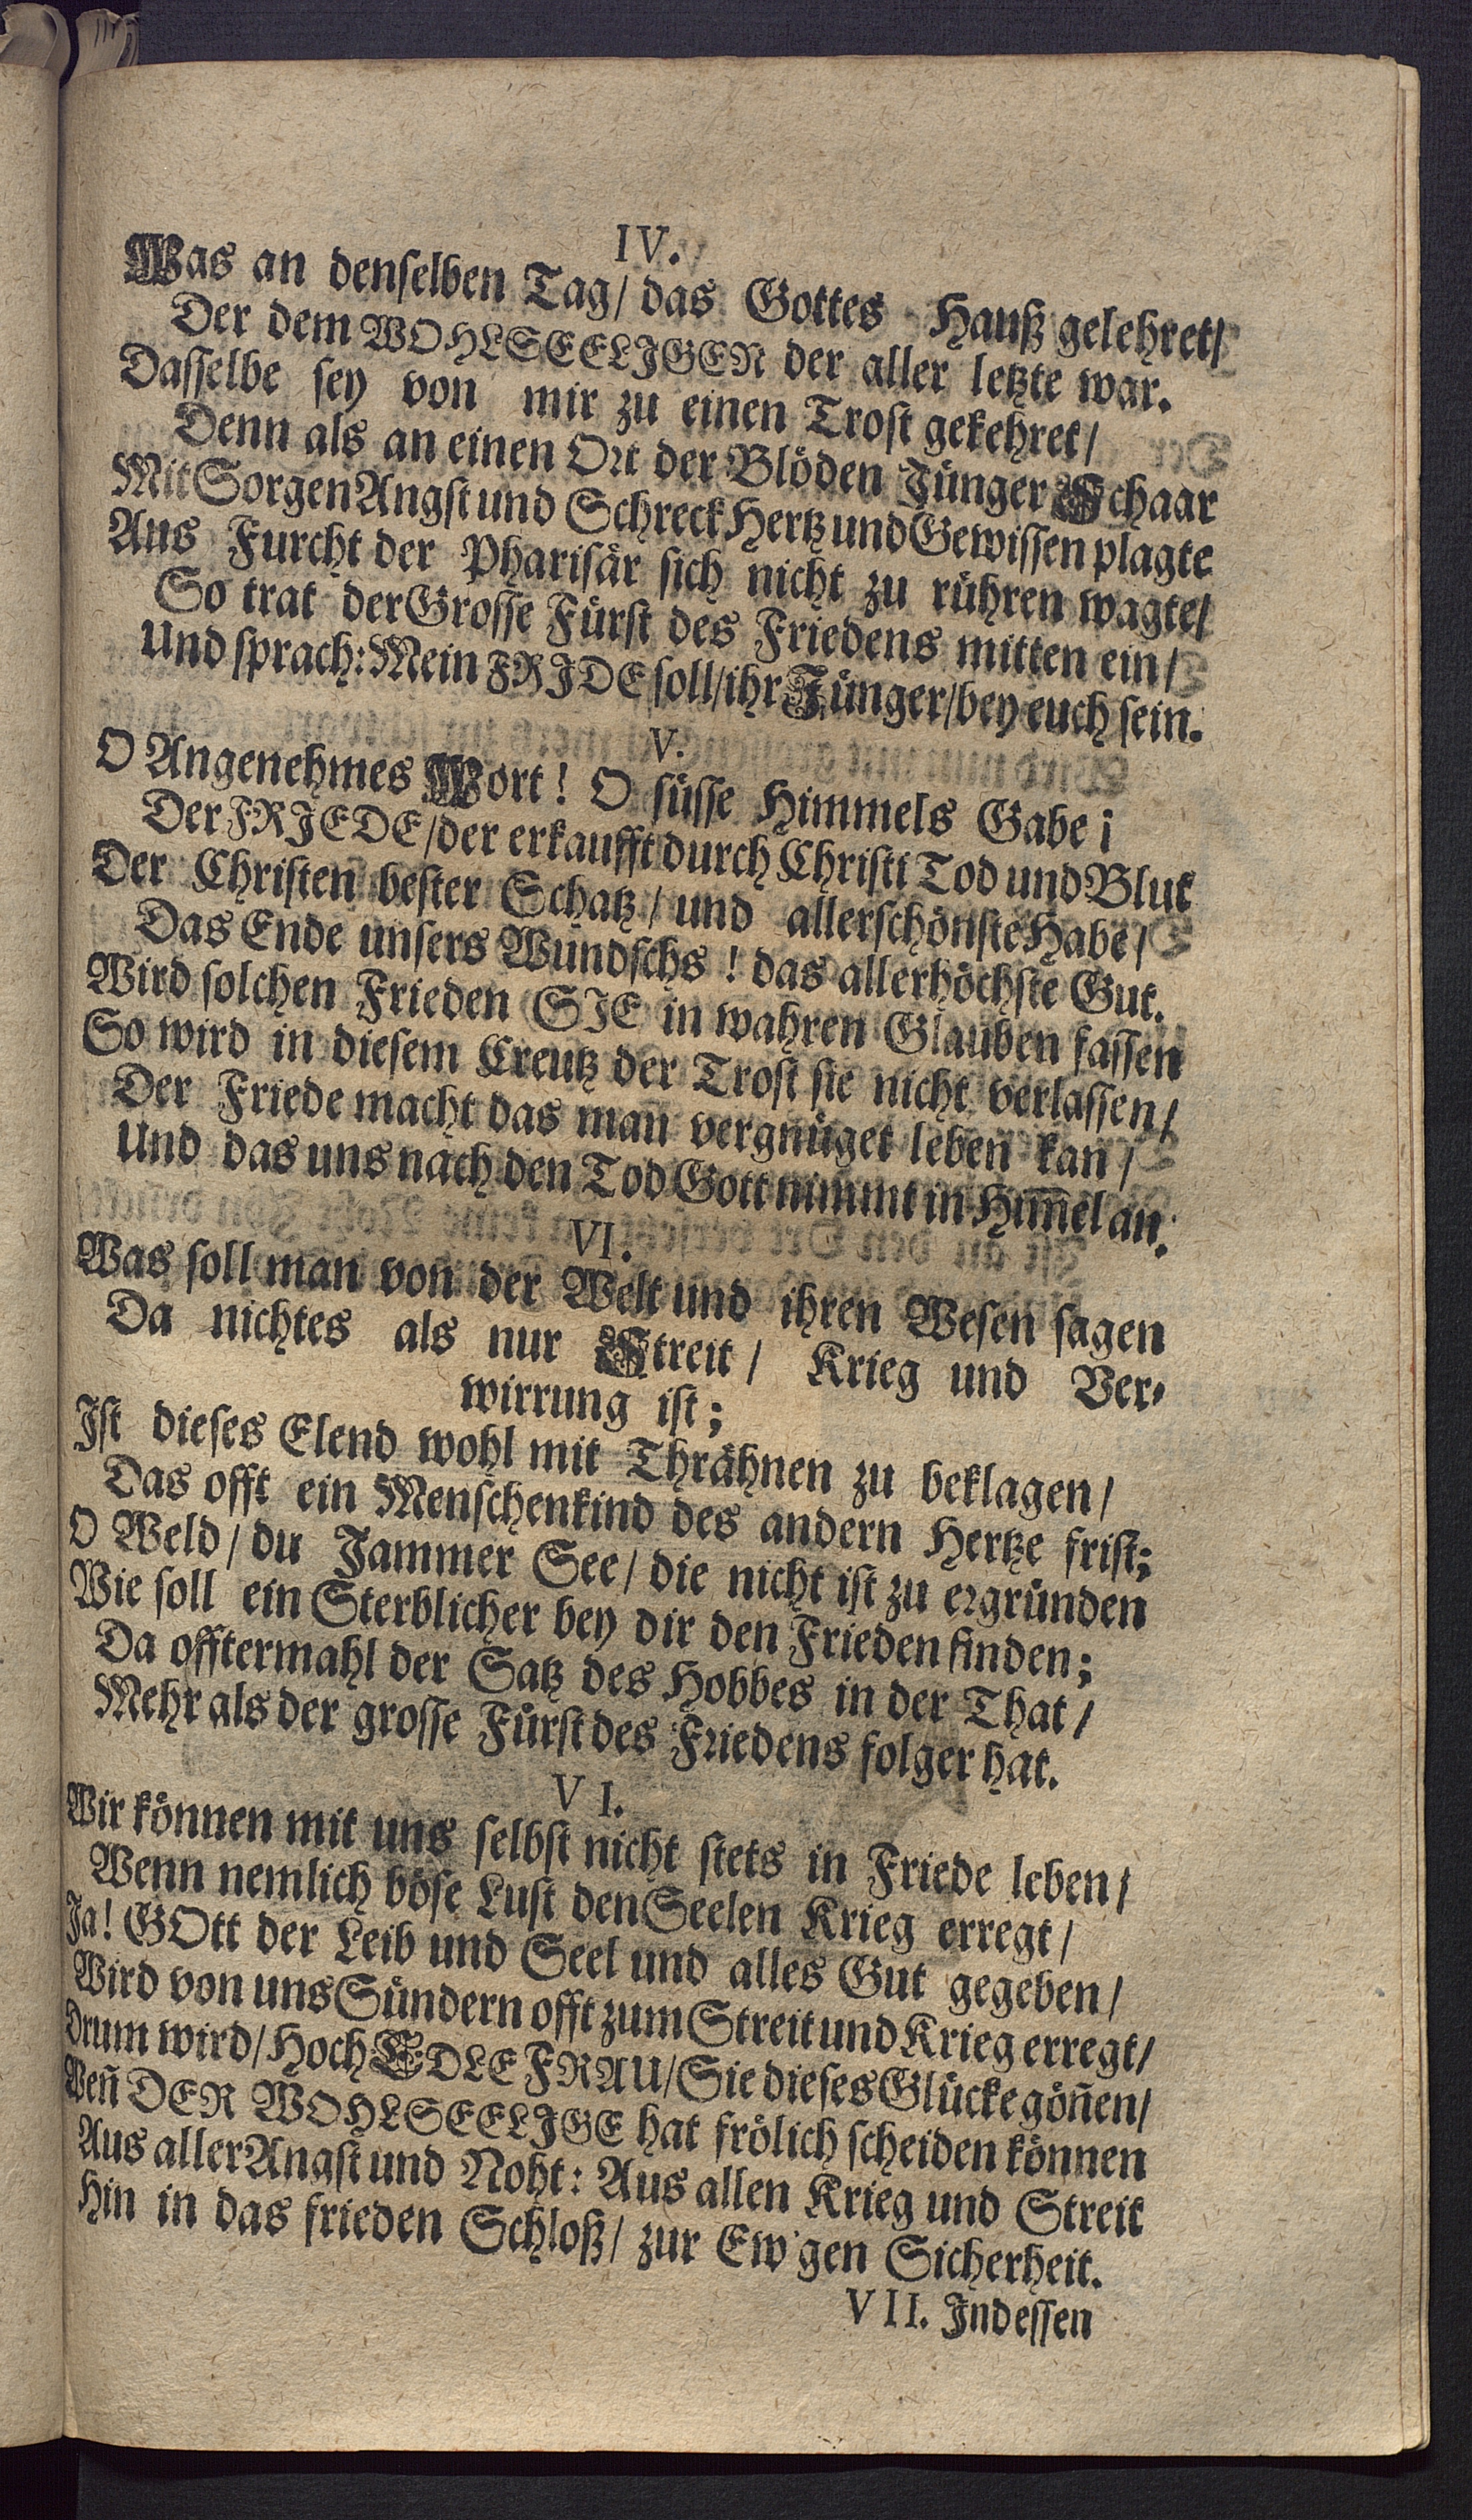 IV.
Was an denſelben Tag/ das Gottes Hauß gelehret/
Der dem WOHLSEELIGEN der aller letzte war.
Daſſelbe ſey von mir zu einen Troſt gekehret/
Denn als an einen Ort der Blöden Jünger Schaar
Mit Sorgen Angſt und Schreck Hertz und Gewiſſen plagte
Aus Furcht der Phariſär ſich nicht zu rühren wagte/
So trat der Groſſe Fürſt des Friedens mitten ein/
Und ſprach: Mein FRIDE ſoll/ihr Jünger/bey euch ſein.
V.
O Angenehmes Wort! O ſüſſe Himmels Gabe ¡
Der FRIEDE/der erkaufft durch Chriſti Tod und Blut
Der Chriſten beſter Schatz/ und allerſchönſte Habe/
Das Ende unſers Wundſchs! das allerhöchſte Gut.
Wird ſolchen Frieden SIE in wahren Glauben faſſen
So wird in dieſem Creutz der Troſt ſie nicht verlaſſen/
Der Friede macht das man vergnüget leben kan/
Und das uns nach den Tod Gott nimmt in Him̃el an.
VI.
Was ſoll man von der Welt und ihren Weſen ſagen
Da nichtes als nur Streit/ Krieg und Ver-
wirrung iſt;
Iſt dieſes Elend wohl mit Thrähnen zu beklagen/
Das offt ein Menſchenkind des andern Hertze friſt;
O Weld/ du Jammer See/ die nicht iſt zu ergründen
Wie ſoll ein Sterblicher bey dir den Frieden finden;
Da offtermahl der Satz des Hobbes in der That/
Mehr als der groſſe Fürſt des Friedens folger hat.
VI.
Wir können mit uns ſelbſt nicht ſtets in Friede leben/
Wenn nemlich böſe Luſt den Seelen Krieg erregt/
Ja! GOtt der Leib und Seel und alles Gut gegeben/
Wird von uns Sündern offt zum Streit und Krieg erregt/
Drum wird/ Hoch EDLE FRAU/ Sie dieſes Glücke göñen/
Weñ DER WOHLSEELIGE hat frölich ſcheiden können
Aus aller Angſt und Noht: Aus allen Krieg und Streit
Hin in das frieden Schloß/ zur Ew'gen Sicherheit.
VII. Indeſſen